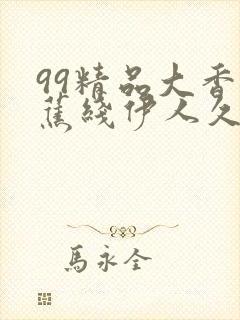 99精品大香
蕉綫伊人久
馬永全